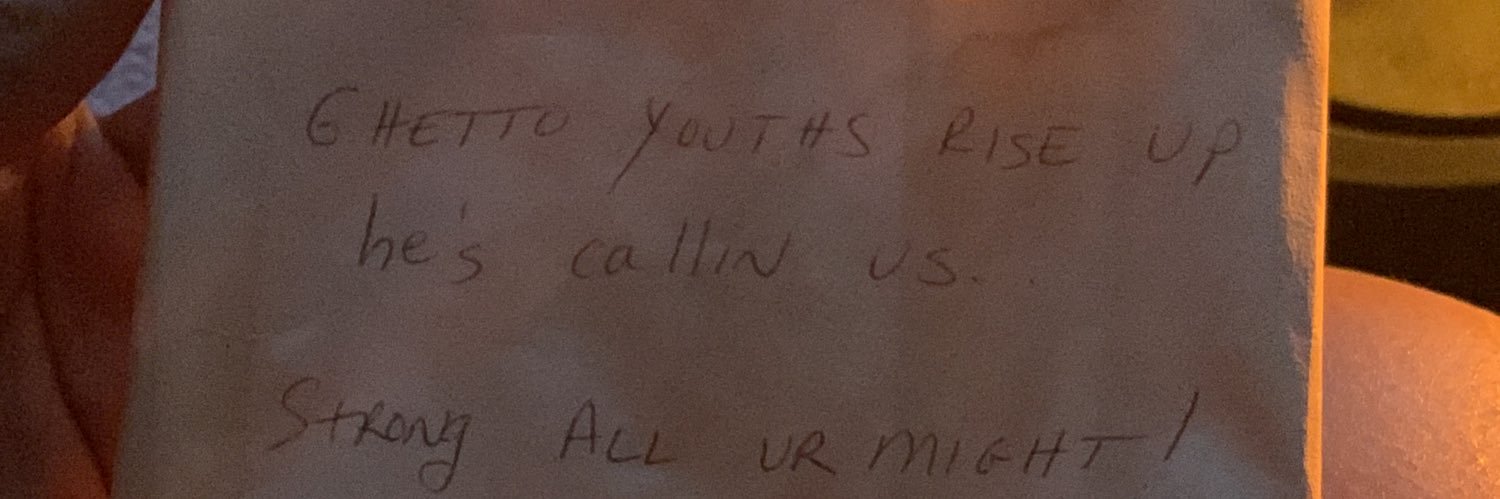 GHETTO YOUTHS RISE UP
he's callin us..
Strong ALL UR MIGHT!